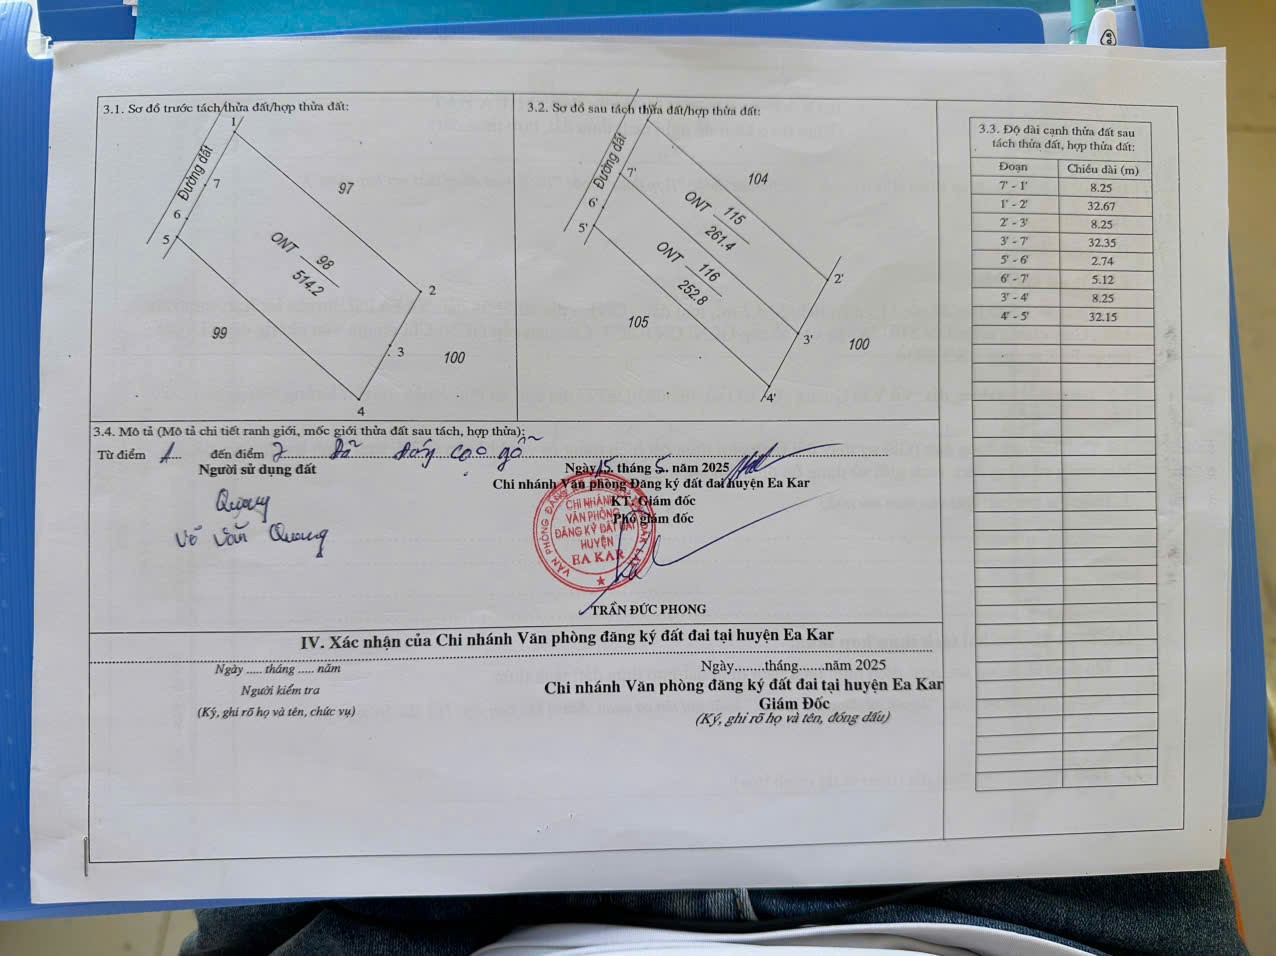 3.1. Sơ đồ trước tách thửa đất/hợp thửa đất:
1
Đường đất
7
97
6
5
ONT 98
514.2
2
99
3
100
4
3.2. Sơ đồ sau tách thửa đất/hợp thửa đất:
Đường đất
7'
104
6'
5'
ONT 115
261.4
ONT 116
252.8
2'
105
3'
100
4'
3.3. Độ dài cạnh thửa đất sau
tách thửa đất, hợp thửa đất:
Đoạn Chiều dài (m)
7' - 1' 8.25
1' - 2' 32.67
2' - 3' 8.25
3' - 7' 32.35
5' - 6' 2.74
6' - 7' 5.12
3' - 4' 8.25
4' - 5' 32.15
3.4. Mô tả (Mô tả chi tiết ranh giới, mốc giới thửa đất sau tách, hợp thửa):
Từ điểm 1 đến điểm 7 Đã đóng cọc gỗ
Người sử dụng đất
Quang
Võ Văn Quang
Ngày 15 tháng 5 năm 2025
Chi nhánh Văn phòng Đăng ký đất đai huyện Ea Kar
KT. Giám đốc
Phó giám đốc
CHI NHÁNH
VĂN PHÒNG
ĐĂNG KÝ ĐẤT ĐAI
HUYỆN
EA KAR
TRẦN ĐỨC PHONG
IV. Xác nhận của Chi nhánh Văn phòng đăng ký đất đai tại huyện Ea Kar
Ngày ..... tháng ..... năm
Người kiểm tra
(Ký, ghi rõ họ và tên, chức vụ)
Ngày........tháng.......năm 2025
Chi nhánh Văn phòng đăng ký đất đai tại huyện Ea Kar
Giám Đốc
(Ký, ghi rõ họ và tên, đóng dấu)